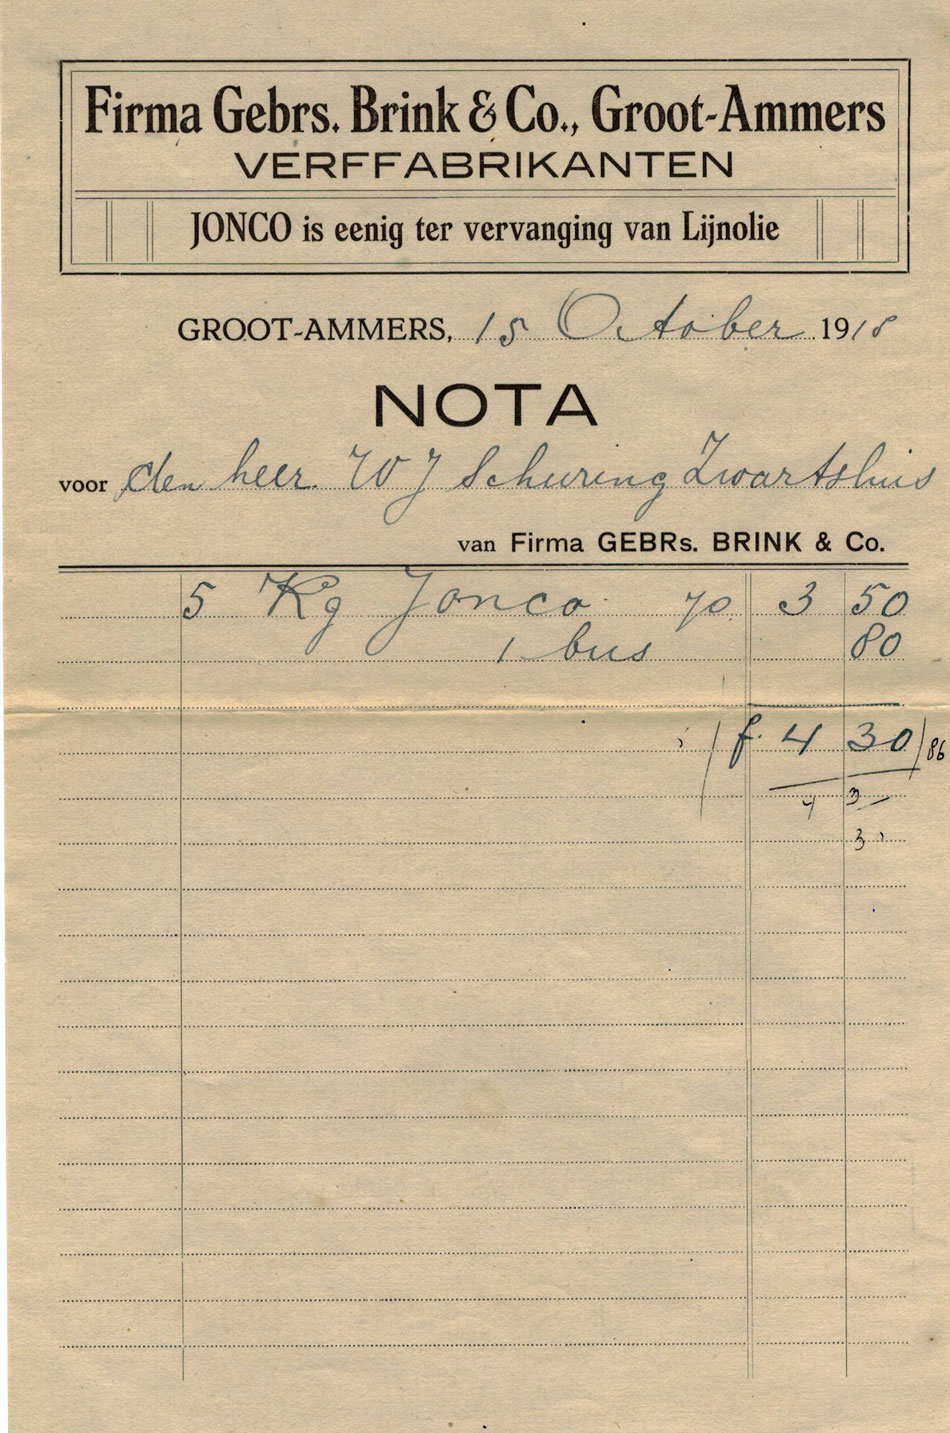 Firma Gebrs. Brink & Co., Groot-Ammers
VERFFABRIKANTEN
JONCO is eenig ter vervanging van Lijnolie
GROOT-AMMERS, 15 October 1918
NOTA
voor den heer W J Schuring Zwartsluis
van Firma GEBRs. BRINK & Co.
5 Kg Jonco 70 3 50
1 bus 80
f. 4 30 86
4 3
3